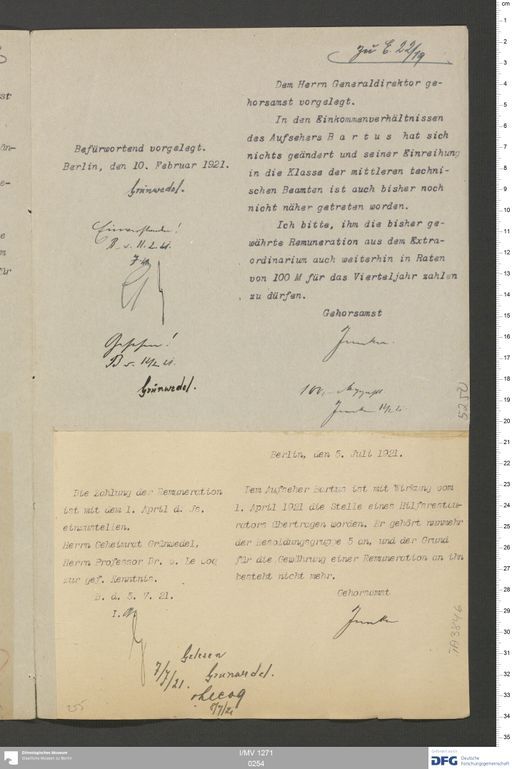 zu E. 22/19
Dem Herrn Generaldirektor ge-
horsamst vorgelegt.
In den Einkommenverhältnissen
des Aufsehers Bartus hat sich
nichts geändert und seiner Einreihung
in die Klasse der mittleren techni-
schen Beamten ist auch bisher noch
nicht näher getreten worden.
Ich bitte, ihm die bisher ge-
währte Remuneration aus dem Extra-
ordinarium auch weiterhin in Raten
von 100 M für das Vierteljahr zahlen
zu dürfen.
Gehorsamst
Befürwortend vorgelegt.
Berlin, den 10. Februar 1921.
Grünwedel.
Einverstanden!
Gesehen!
Grünwedel.
5250
Berlin, den 5. Juli 1921.
Dem Aufseher Bartus ist mit Wirkung vom
1. April 1921 die Stelle eines Hilfsrestau-
rators übertragen worden. Er gehört nunmehr
der Besoldungsgruppe 5 an, und der Grund
für die Gewährung einer Remuneration an ihn
besteht nicht mehr.
Gehorsamst
Die Zahlung der Remuneration
ist mit dem 1. April d. Js.
einzustellen.
Herrn Geheimrat Grünwedel,
Herrn Professor Dr. v. Le Coq
zur gef. Kenntnis.
B. d. 5. 7. 21.
Gelesen
7/7/21. Grünwedel.
vLecoq
Ethnologisches Museum
Staatliche Museen zu Berlin
I/MV 1271
0254
DFG Deutsche
Forschungsgemeinschaft